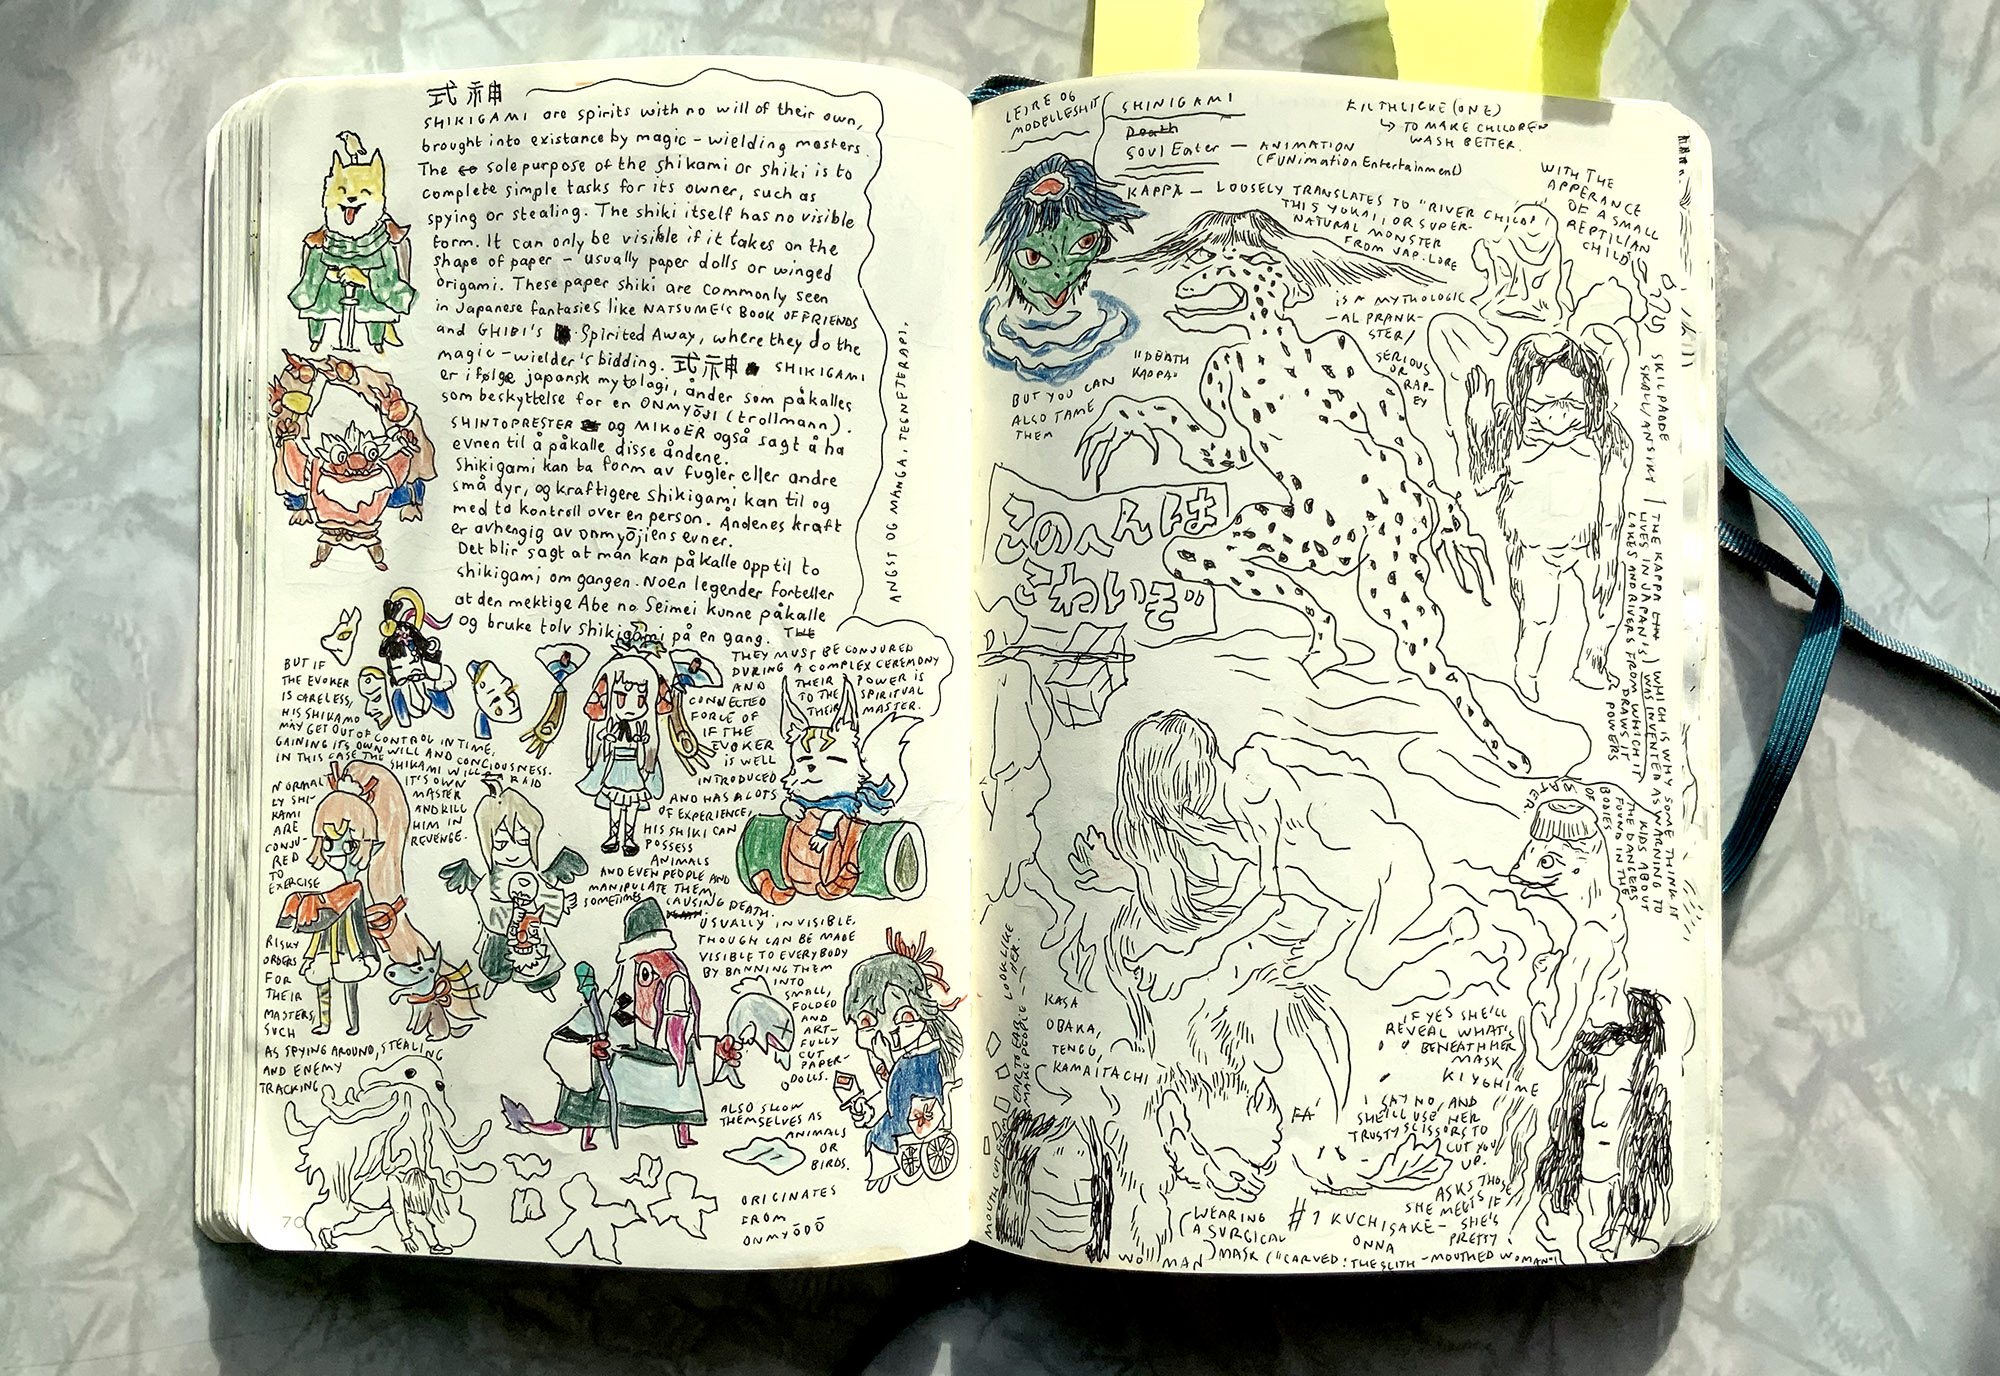 式神
SHIKIGAMI are spirits with no will of their own,
brought into existance by magic – wielding masters.
The sole purpose of the shikami or shiki is to
complete simple tasks for its owner, such as
spying or stealing. The shiki itself has no visible
form. It can only be visible if it takes on the
shape of paper – usually paper dolls or winged
origami. These paper shiki are commonly seen
in Japanese fantasies like NATSUME'S BOOK OF FRIENDS
and GHIBI'S Spirited Away, where they do the
magic – wielder's bidding. 式神 SHIKIGAMI
er ifølge japansk mytologi, ånder som påkalles
som beskyttelse for en ONMYŌJI (trollmann).
SHINTOPRESTER og MIKOER også sagt å ha
evnen til å påkalle disse åndene.
Shikigami kan ta form av fugler eller andre
små dyr, og kraftigere shikigami kan til og
med ta kontroll over en person. Åndenes kraft
er avhengig av onmyōjiens evner.
Det blir sagt at man kan påkalle opp til to
shikigami om gangen. Noen legender forteller
at den mektige Abe no Seimei kunne påkalle
og bruke tolv shikigami på en gang. THE
ANGST OG MANGA, TEGNETERAPI.
THEY MUST BE CONJURED
DURING A COMPLEX CEREMONY
AND THEIR POWER IS
CONNECTED TO THE SPIRITUAL
FORCE OF THEIR MASTER.
IF THE
EVOKER
IS WELL
INTRODUCED
AND HAS A LOTS
OF EXPERIENCE,
HIS SHIKI CAN
POSSESS
ANIMALS
AND EVEN PEOPLE AND
MANIPULATE THEM,
SOMETIMES CAUSING DEATH.
USUALLY INVISIBLE,
THOUGH CAN BE MADE
VISIBLE TO EVERYBODY
BY BANNING THEM
INTO
SMALL,
FOLDED
AND
ART–
FULLY
CUT
PAPER–
DOLLS.
ALSO SHOW
THEMSELVES AS
ANIMALS
OR
BIRDS.
ORIGINATES
FROM
ONMYŌDŌ
BUT IF
THE EVOKER
IS CARELESS,
HIS SHIKAMO
MAY GET OUT OF CONTROL IN TIME,
GAINING ITS OWN WILL AND CONCIOUSNESS.
IN THIS CASE THE SHIKAMI WILL RAID
IT'S OWN
MASTER
AND KILL
HIM IN
REVENGE.
NORMAL
LY SHI–
KAMI
ARE
CONJU–
RED
TO
EXERCISE
RISKY
ORDERS
FOR
THEIR
MASTERS,
SUCH
AS SPYING AROUND, STEALING
AND ENEMY
TRACKING
70
LEIRE 06
MODELLESHIT
SHINIGAMI
Death
Soul Eater – ANIMATION
(FUNimation Entertainment)
FILTHLICKE (ONE)
↳ TO MAKE CHILDREN
WASH BETTER.
KAPPA – LOOSELY TRANSLATES TO "RIVER CHILD"
THIS YOKAI, OR SUPER–
NATURAL MONSTER
FROM JAP. LORE
WITH THE
APPERANCE
OF A SMALL
REPTILIAN
CHILD
IS A MYTHOLOGIC
–AL PRANK–
STER/
SERIOUS
OR RAP–
EY
"DEATH
KAPPA"
BUT YOU CAN
ALSO TAME
THEM
このへんは
こわいぞ"
SKILPADDE
SKALL/ANSIKT
THE KAPPA
LIVES IN JAPAN'S
LAKES AND RIVERS FROM WHICH IT
DRAWS IT
POWERS
WHICH IS WHY SOME THINK IT
WAS INVENTED AS WARNING TO
KIDS ABOUT
THE DANGERS
FOUND IN THE
BODIES
OF
WATER
KASA
OBAKA,
TENGU,
KAMAITACHI
IF YES SHE'LL
REVEAL WHAT'S
BENEATH HER
MASK
KIYOHIME
I SAY NO, AND
SHE'LL USE HER
TRUSTY SCISSORS TO
CUT YOU
UP.
ASKS THOSE
SHE MEETS IF
SHE'S
PRETTY
FA'
#1 KUCHISAKE–
ONNA
WEARING
A SURGICAL
MASK ("CARVED: THE SLITH – MOUTHED WOMAN")
WOMAN
MOUTH CUT FROM
EAR TO EAR
MAKE PEOPLE LOOK LIKE
HER.